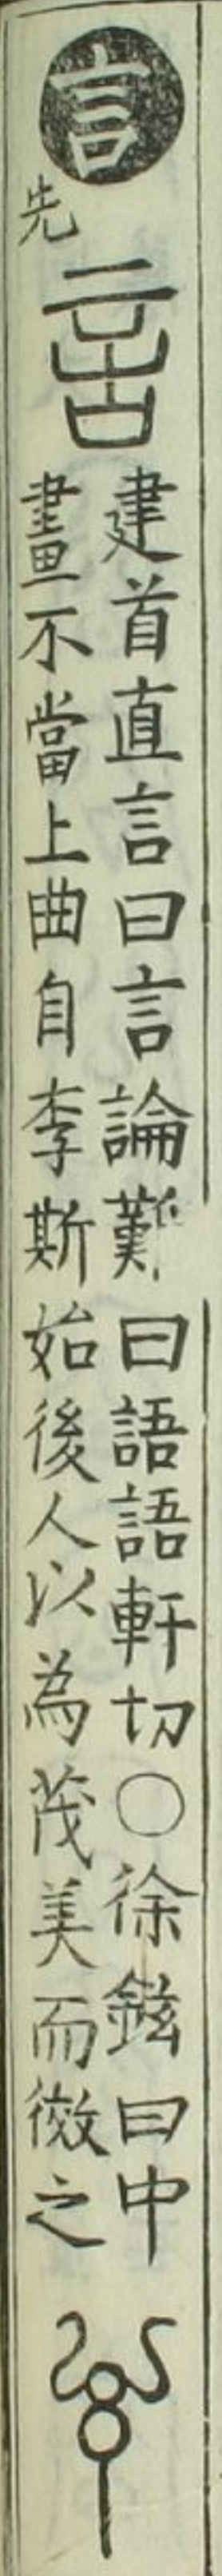 言
先
建首直言曰言論難曰語語軒切○徐鉉曰中
畫不當上曲自李斯始後人以為茂美而效之